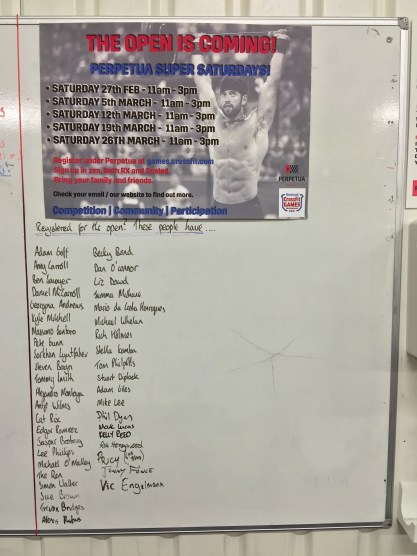 THE OPEN IS COMING!
PERPETUA SUPER SATURDAYS!
• SATURDAY 27th FEB - 11am - 3pm
• SATURDAY 5th MARCH - 11am - 3pm
• SATURDAY 12th MARCH - 11am - 3pm
• SATURDAY 19th MARCH - 11am - 3pm
• SATURDAY 26TH MARCH - 11am - 3pm
Register under Perpetua at games.crossfit.com
Sign up in zen, both RX and Scaled.
Bring your family and friends.
Check your email / our website to find out more.
Competition | Community | Participation
PERPETUA
Reebok
CrossFit
GAMES
Registered for the open! These people have....
Adam Goff
Amy Carroll
Ben Sawyer
Daniel McCarroll
Georgina Andrews
Kyle Mitchell
Massimo
Pete Gunn
Steven
Tommy Smith
Alejandro Montoya
Cat Roe
Edgar Ramirez
Lee Phillips
Michael O'Malley
The Ren
Simon Walker
Sue Brown
Trevor Bridges
Alexis
Becky Bond
Dan O'Connor
Liz Dowd
Gemma
Mario da Costa Henriques
Michael Whelan
Rich Holmes
Stella
Tom Philpotts
Stuart
Adam Liles
Mike Lee
Phil Dyer
Mark Lucas
Kelly Reed
Rob Honeywood
Vic Engelmann